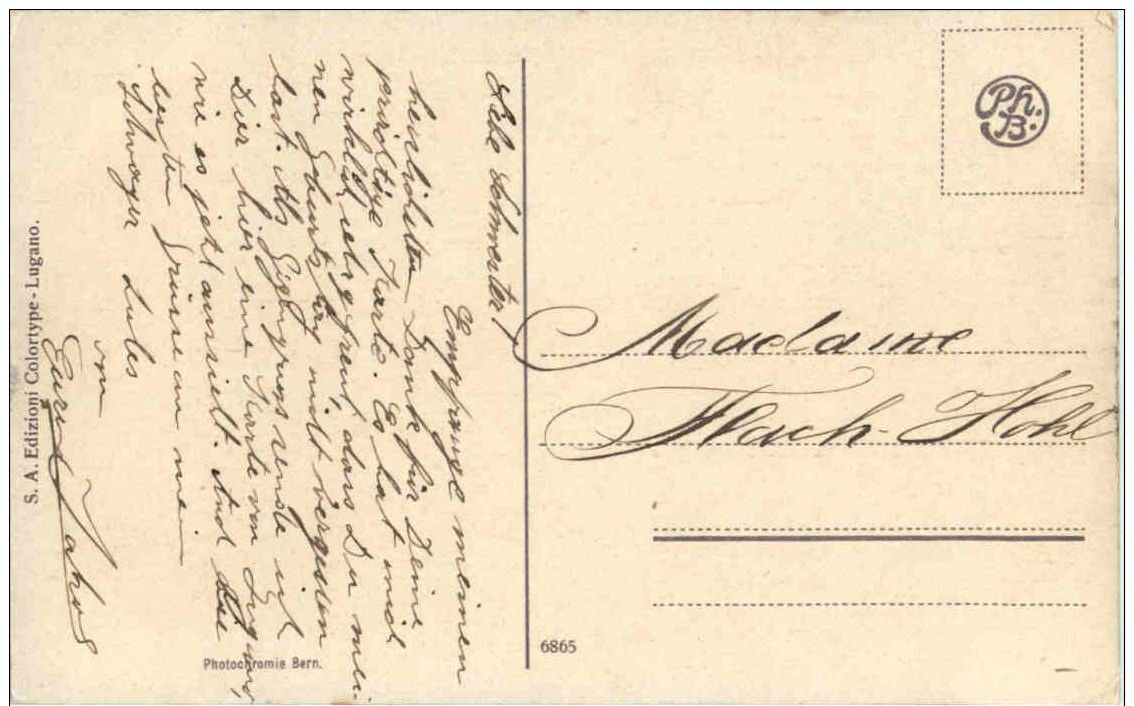 Liebe Schwester!
Empfange meinen
herzlichsten Dank für Deine
prächtige Karte. Es hat mich
wirklich sehr gefreut, dass Du mei-
nen Geburtstag nicht vergessen
hast. Als Gegengruss sende ich
Dir hier eine Karte von Lugano,
wie es jetzt aussieht. Auch die
besten Grüsse an mein
Schwager
von
Madame
Flach-Hohl
Ph. B.
6865
Photochromie Bern.
S. A. Edizioni Colortype-Lugano.